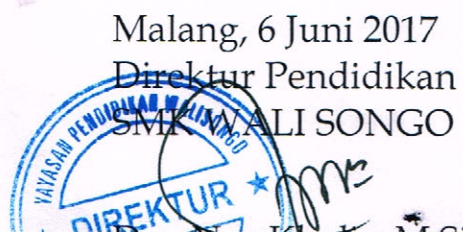 Malang, 6 Juni 2017
Direktur Pendidikan
SMK WALI SONGO
YAYASAN PENDIDIKAN WALISONGO
DIREKTUR